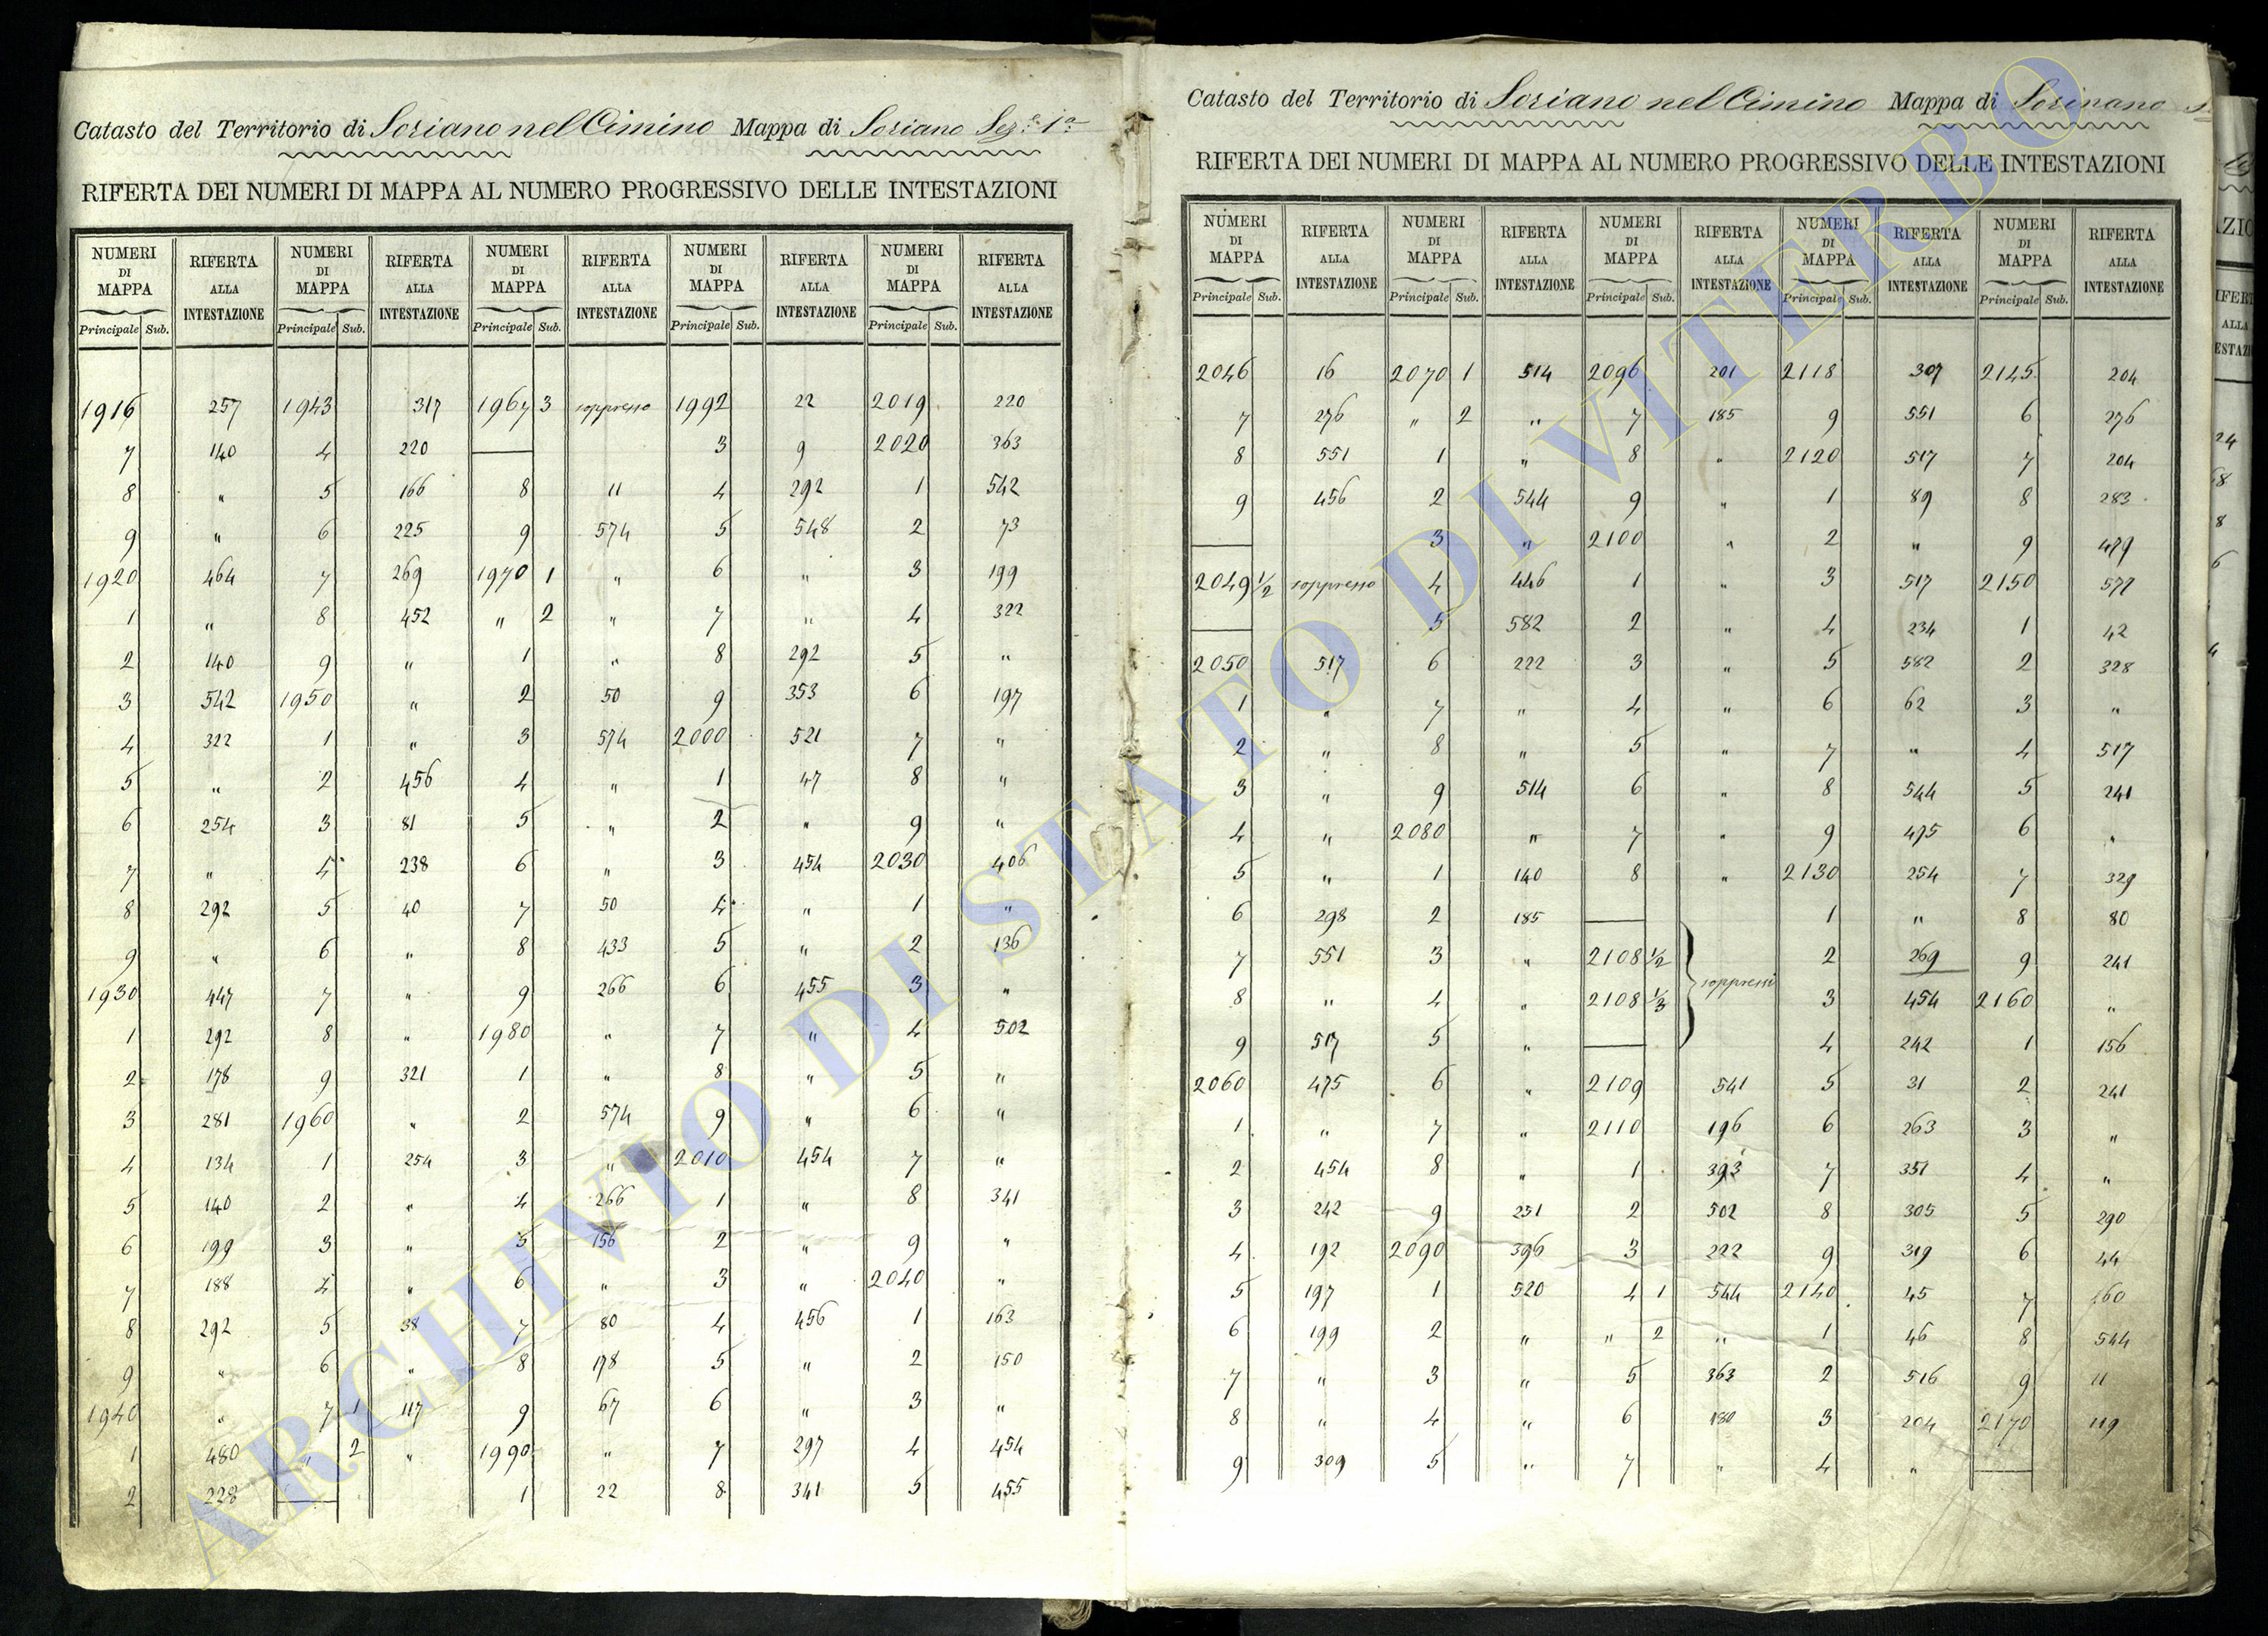 Catasto del Territorio di Soriano nel Cimino Mappa di Soriano Sez.e 1a
RIFERTA DEI NUMERI DI MAPPA AL NUMERO PROGRESSIVO DELLE INTESTAZIONI
NUMERI DI MAPPA RIFERTA ALLA INTESTAZIONE NUMERI DI MAPPA RIFERTA ALLA INTESTAZIONE NUMERI DI MAPPA RIFERTA ALLA INTESTAZIONE NUMERI DI MAPPA RIFERTA ALLA INTESTAZIONE NUMERI DI MAPPA RIFERTA ALLA INTESTAZIONE
Principale Sub. Principale Sub. Principale Sub. Principale Sub. Principale Sub.
1916 257 1943 317 1967 3 soppresso 1992 22 2019 220
7 140 4 220 3 9 2020 363
8 " 5 166 8 11 4 292 1 542
9 " 6 225 9 574 5 548 2 73
1920 464 7 269 1970 1 " 6 " 3 199
1 " 8 452 " 2 " 7 " 4 322
2 140 9 " 1 " 8 292 5 "
3 542 1950 " 2 50 9 353 6 197
4 322 1 " 3 574 2000 521 7 "
5 " 2 456 4 " 1 47 8 "
6 254 3 81 5 " 2 " 9 "
7 " 4 238 6 " 3 454 2030 406
8 292 5 40 7 50 4 " 1 "
9 " 6 " 8 433 5 " 2 136
1930 447 7 " 9 266 6 455 3 "
1 292 8 " 1980 " 7 " 4 502
2 178 9 321 1 " 8 " 5 "
3 281 1960 " 2 574 9 " 6 "
4 134 1 254 3 " 2010 454 7 "
5 140 2 " 4 266 1 " 8 341
6 199 3 " 5 156 2 " 9 "
7 188 4 " 6 " 3 " 2040 "
8 292 5 38 7 80 4 456 1 163
9 " 6 " 8 178 5 " 2 150
1940 " 7 1 117 9 67 6 " 3 "
1 480 " 2 " 1990 " 7 297 4 454
2 228 1 22 8 341 5 455
Catasto del Territorio di Soriano nel Cimino Mappa di Sorinano
RIFERTA DEI NUMERI DI MAPPA AL NUMERO PROGRESSIVO DELLE INTESTAZIONI
NUMERI DI MAPPA RIFERTA ALLA INTESTAZIONE NUMERI DI MAPPA RIFERTA ALLA INTESTAZIONE NUMERI DI MAPPA RIFERTA ALLA INTESTAZIONE NUMERI DI MAPPA RIFERTA ALLA INTESTAZIONE NUMERI DI MAPPA RIFERTA ALLA INTESTAZIONE
Principale Sub. Principale Sub. Principale Sub. Principale Sub. Principale Sub.
2046 16 2070 1 514 2096 201 2118 307 2145 204
7 276 " 2 " 7 185 9 551 6 276
8 551 1 " 8 " 2120 517 7 204
9 456 2 544 9 " 1 89 8 283
3 " 2100 " 2 " 9 479
2049 1/2 soppresso 4 446 1 " 3 517 2150 577
5 582 2 " 4 234 1 42
2050 517 6 222 3 " 5 582 2 328
1 " 7 " 4 " 6 62 3 "
2 " 8 " 5 " 7 " 4 517
3 " 9 514 6 " 8 544 5 241
4 " 2080 " 7 " 9 475 6 "
5 " 1 140 8 " 2130 254 7 329
6 298 2 185 1 " 8 80
7 551 3 " 2108 1/2 soppressi 2 269 9 241
8 " 4 " 2108 1/3 3 454 2160 "
9 517 5 " 4 242 1 156
2060 475 6 " 2109 541 5 31 2 241
1 " 7 " 2110 196 6 263 3 "
2 454 8 " 1 393 7 351 4 "
3 242 9 251 2 502 8 305 5 290
4 192 2090 396 3 222 9 319 6 44
5 197 1 520 4 1 544 2140 45 7 160
6 199 2 " " 2 " 1 46 8 544
7 " 3 " 5 363 2 516 9 11
8 " 4 " 6 180 3 204 2170 119
9 309 5 " 7 " 4 "
ARCHIVIO DI STATO DI VITERBO